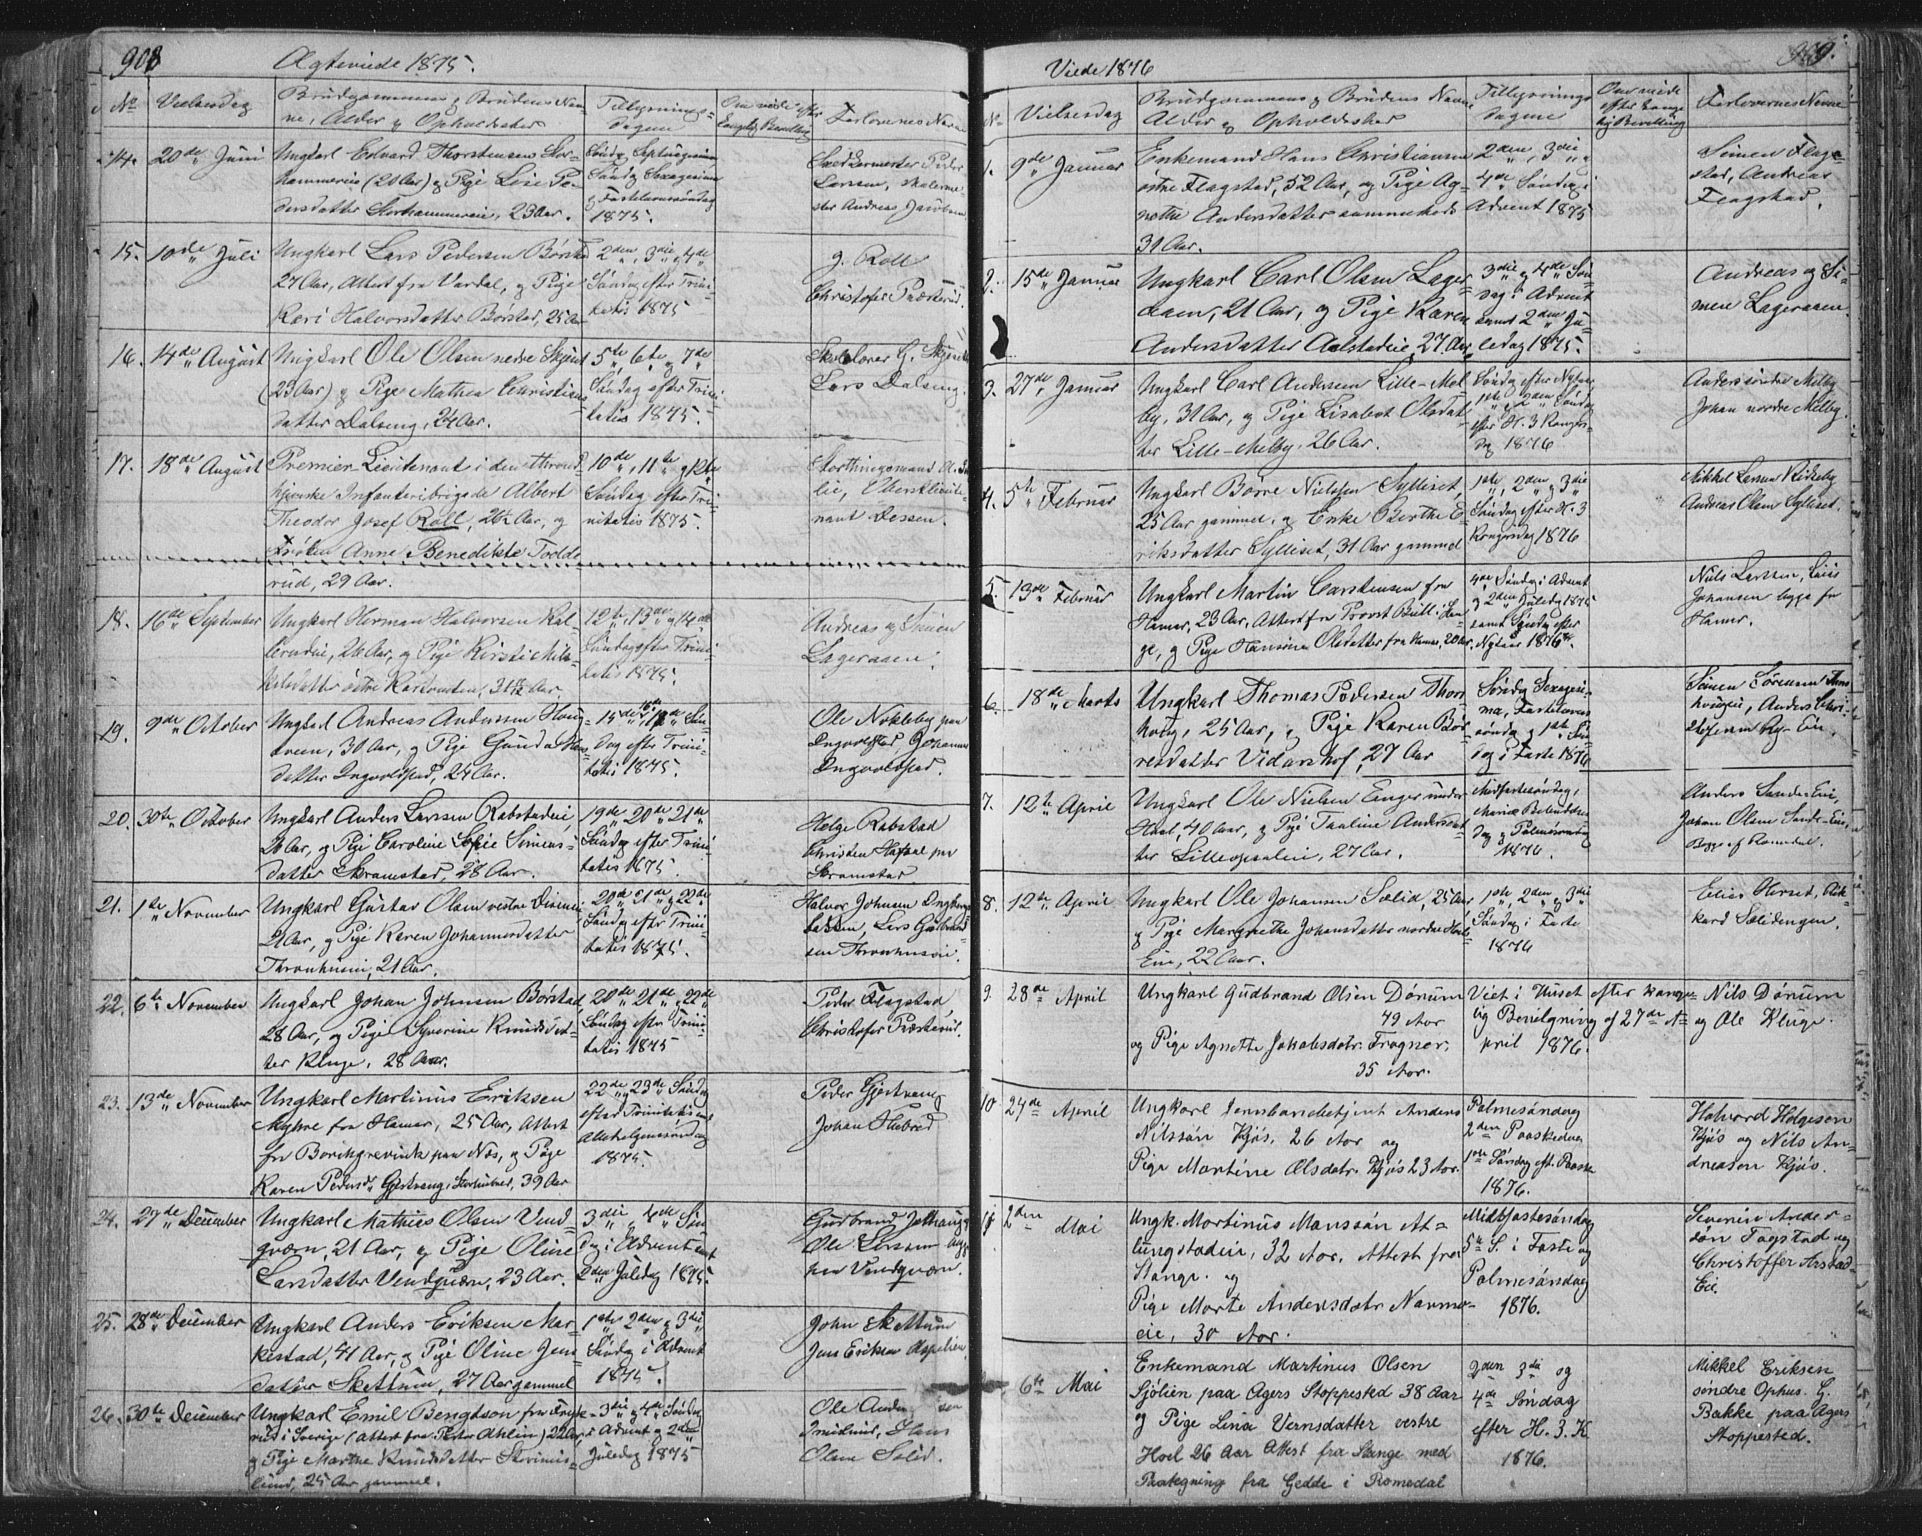 908
Ægteviede 1875.
No
Vielsesdag
Brudgommens og Brudens Nav-
ne, Alder og Opholdssted
Tillysnings-
dagene
Om viede efter
Kongelig Bevilling
Forlovernes Navne
14.
20de Juni
Ungkarl Edvard Thorstensen Stor-
hammereie (20 Aar) og Pige Lise Pe-
dersdatter Storhammereie, 23 Aar.
Søndag Septuagesima
Søndag Sexagesima
og Fastelavnssøndag
1875.
Peder
Larsen,
ster Andreas Jacobsen
15.
10de Juli
Ungkarl Lars Pedersen Børstad
27 Aar, Attest fra Vardal, og Pige
Kari Halvorsdatter Børstad, 25 Aar
2den, 3die, 4de
Søndag efter Trini-
tatis 1875
J. Roll
Christofer Præsterud.
16.
14de August
Ungkarl Ole Olsen nedre Skjeset
(23 Aar) og Pige Mathea Christians-
datter Dalseng, 24 Aar.
5te, 6te, og 7de
Søndag efter Trini-
tatis 1875.
Skolelærer G. Skjeset
Lars Dalseng.
17.
18de August
Premier-Lieutenant i den thrond-
hjemske Infanteribrigade Albert
Theodor Josef Roll, 26½ Aar, og
Frøken Anne Benedikte Todde-
rud, 29 Aar.
10de, 11te og 12te
Søndag efter Tri-
nitatis 1875.
Storthingsmand
lie, Oberstlieute-
nant Dessen.
18.
16de September
Ungkarl Herman Halvorsen Kal-
erudeie, 26 Aar, og Pige Kirsti Mik-
kelsdatter østre Karstensten, 31 Aar
12te, 13de og 14de
Søndag efter Trini-
tatis 1875.
Andreas og Simen
Lageraaen.
19.
9de October
Ungkarl Andreas Andersen Houg-
tveen, 30 Aar, og Pige Gunda
datter Ingvoldstad, 24 Aar.
15de, 16de og 17de Søn-
dag efter Trini-
tatis 1875.
Ole Nokleby paa
Ingvoldstad, Johannes
Ingvoldstad.
20.
30te October
Ungkarl Anders Larsen Rabstadeie,
26 Aar, og Pige Caroline Sofie Simens-
datter Skramstad, 28 Aar.
19de 20de 21de
Søndag efter Trini-
tatis 1875.
Helge Rabstad
Christen Hafsal paa
Skramstad
21.
1te November
Ungkarl Gustav Olsen vestre Disenie
21 Aar, og Pige Karen Johannesdatter
Thronhuseie, 21 Aar.
20de 21de og 22de
Søndag efter Trini-
tatis 1875.
Halvor Johnsen
Lars Gulbrand-
sen Thronhuseie.
22.
6te November
Ungkarl Johan Johnsen Børstad,
28 Aar, og Pige Syverine Knudsdat-
ter Kluge, 28 Aar.
20de 21de, 22de
Søndag efter Trini-
tatis 1875
Peder Flagstad,
Christofer Præsterud.
23.
13de November
Ungkarl Martinus Eriksen
Myhre fra Hamar, 25 Aar, Attest
fra Borchgrevink paa Næs, og Pige
Karen Pedersdr Gjetvang, 39 Aar
22de 23de Søndag
efter Trinitatis og
Allehelgenssøndag
1875.
Peder Gjertvang
Johan
24.
27de December
Ungkarl Mathias Olsen Vend-
qværn, 21 Aar, og Pige Oline
Larsdatter Vendqværn, 23 Aar.
3die, 4de Søn-
dag i Advent samt
2den Juledag 1875.
Gudbrand
Ole Larsen
paa Vendqværn.
25.
28de December
Ungkarl Anders Eriksen Mar-
kestad, 41 Aar, og Pige Oline Jens-
datter Skettum, 27 Aar gammel
1ste 2den og 3die
Søndag i Advent
1875.
John Skettum
Jens Eriksen Aspelien.
26.
30te December
Ungkarl Emil Bengtson fra
i Sverige (Attest fra Pastor Ahlin) 22 Aar,
og Pige Marthe Knudsdatter
lund, 25 Aar gammel.
3die og 4de Søndag
i Advent og 2den
Juledag 1875
Ole
Hans
Olsen Sælid.
909.
Viede 1876
No
Vielsesdag
Brudgommens og Brudens Navne
Alder og Opholdssted
Tillysnings-
dagene
Om viede
efter Konge-
lig Bevilling
Forlovernes Navne
1.
9de Januar
Enkemand Hans Christiansen
østre Flagstad, 52 Aar, og Pige Ag-
nethe Andersdatter sammesteds
31 Aar.
2den, 3die,
4de Søndag i
Advent 1875
Simen Flag-
stad, Andreas
Flagstad.
2.
15de Januar
Ungkarl Carl Olsen Lager-
aaen, 21 Aar, og Pige Karen
Andersdatter Aalstadeie, 27 Aar.
3die og 4de Søn-
dag i Advent
samt 2den Ju-
ledag 1875.
Andreas og Si-
men Lageraaen.
3.
27de Januar
Ungkarl Carl Andersen Lille-Mel-
by, 31 Aar, og Pige Lisabet Olsdat-
ter Lille-Melby. 26 Aar.
Søndag efter Nytaar
1ste, 2den Søndag
efter H. 3 Konger-
dag 1876
Anders søndre Melby
Johan nordre Melby.
4.
5te Februar
Ungkarl Børre Nilsen Sylliset,
25 Aar gammel, og Enke Berthe E-
riksdatter Sylliset, 31 Aar gammel
1ste, 2den og 3die
Søndag efter H. 3
Kongersdag 1876
Mikkel Larsen
Andreas Olsen Sylliset.
5.
13de Februar
Ungkarl Martin Carstensen fra
Hamar, 23 Aar, Attest fra Provst Bull i Van-
ge, og Pige Hansine Olsdatter fra Hamar, 20 Aar
4de Søndag i Advent
og 2den Juledag 1875
samt Søndag efter
Nytaar 1876.
Niels Larsen, Lars
Johansen begge fra
Hamar.
6.
18de Marts
Ungkarl Thomas Pedersen Thor-
houg, 25 Aar, og Pige Karen Bør-
resdatter Vidarshof, 27 Aar
Søndag Sexagesi-
ma, Fastelavns-
søndag og 1ste Søn-
dag i Faste 1876
Simen Sørensen
Anders Chri-
stofersen Ry-Eie.
7.
12te April
Ungkarl Ole Nielsen Enger under
Hoel, 40 Aar, og Pige Pauline Andersdat-
ter Lilleopsaleie, 27 Aar.
Midfastesøndag,
Mariæ Bebudelses-
dag og Palmesøndag
1876.
Anders Sande-Eie,
Johan Olsen Sande-Eie,
Begge af Romedal.
8.
12te April
Ungkarl Ole Johansen Sælid, 25 Aar
og Pige Margrethe Johansdatter nordre Hoel-
Eie, 22 Aar.
1ste, 2den og 3die
Søndag i Faste
1876
Elias Hersed, Rik-
kard Sælidengen.
9.
28de April
Ungkarl Gudbrand Olsen Dørum
49 Aar
og Pige Agnethe Jakobsdatr. Frogner,
35 Aar.
Viet i Huset efter konge-
lig Bevilgning af 27de A-
pril 1876.
Nils Dørum
og Ole Kluge.
10
24de April
Ungkarl Jernbanebetjent Anders
Nilssøn Kjøs, 26 Aar og
Pige Martine Olsdatr. Kjøs 23 Aar.
Palmesøndag
2den Paaskedag
1ste Søndag eft. Paaske
1876.
Halvard Helgesøn
Kjøs og Nils An-
dreasøn Kjøs.
11
2den Mai
Ungk. Martinus Monssøn At-
lungstadeie, 32 Aar. Attest fra
Stange. og
Pige Marte Andersdatr Navmo-
eie, 30 Aar.
Midtfastesøndag
5te S. i Faste og
Palmesøndag
1876.
Severin Ander-
søn Fogstad og
Christoffer Arstad-
Eie.
6te Mai
Enkemand Martinus Olsen
Sjølien paa Agers Stoppested 38 Aar
og Pige Lina Vernsdatter vestre
Hoel 26 Aar Attest fra Stange med
Paategning fra Gedde i Romedal
2den 3die og
4de Søndag
efter H. 3. K
1876.
Mikkel Eriksen
søndre Ophus. G.
Bakke paa Agers
Stoppested.